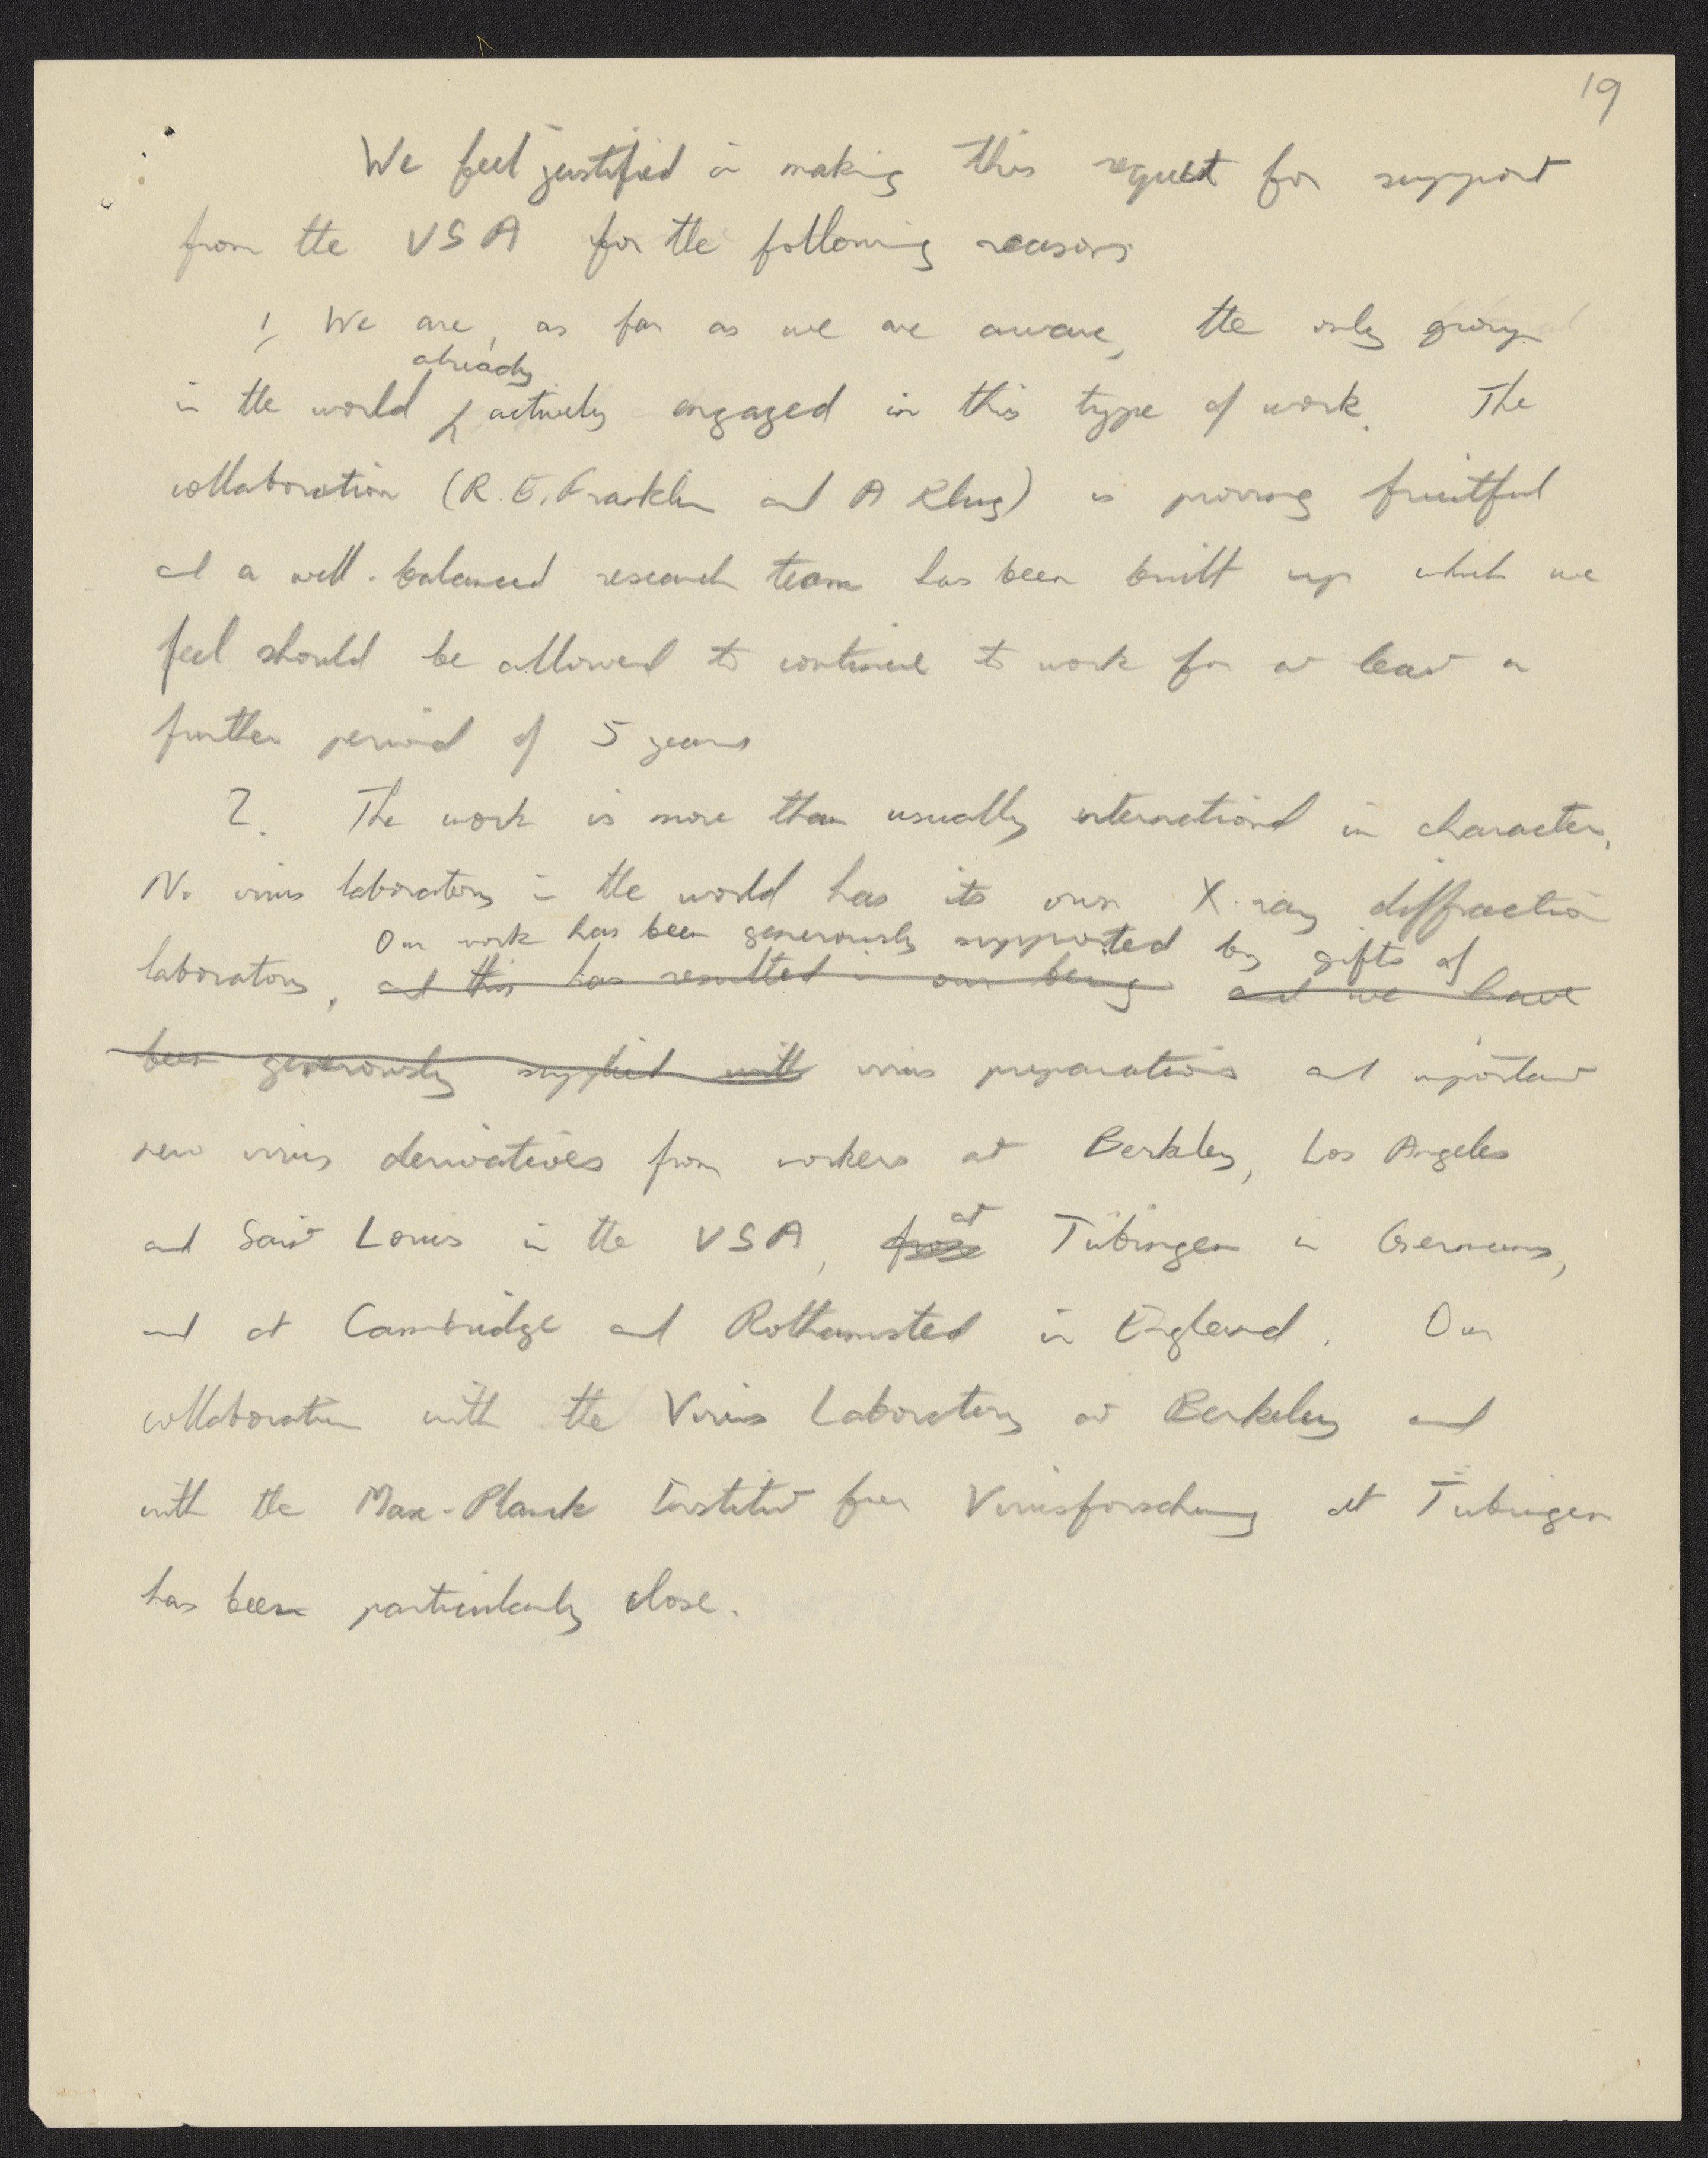 19
We feel justified in making this request for support
from the USA for the following reasons
1, We are, as far as we are aware, the only group
already
in the world actively engaged in this type of work. The
collaboration (R. E. Franklin and A Klug) is proving fruitful
and a well-balanced research team has been built up which we
feel should be allowed to continue to work for at least a
further period of 5 years
2. The work is more than usually international in character.
No virus laboratory in the world has its own X-ray diffraction
Our work has been generously supported by gifts of
laboratory, and this has resulted in our being and we have
been generously supplied with virus preparations and important
new virus derivatives from workers at Berkley, Los Angeles
at
and Saint Louis in the USA, from Tübingen in Germany,
and at Cambridge and Rothamsted in England. Our
collaboration with the Virus Laboratory at Berkeley and
with the Max-Planck Institut fuer Virusforschung at Tübingen
has been particularly close.